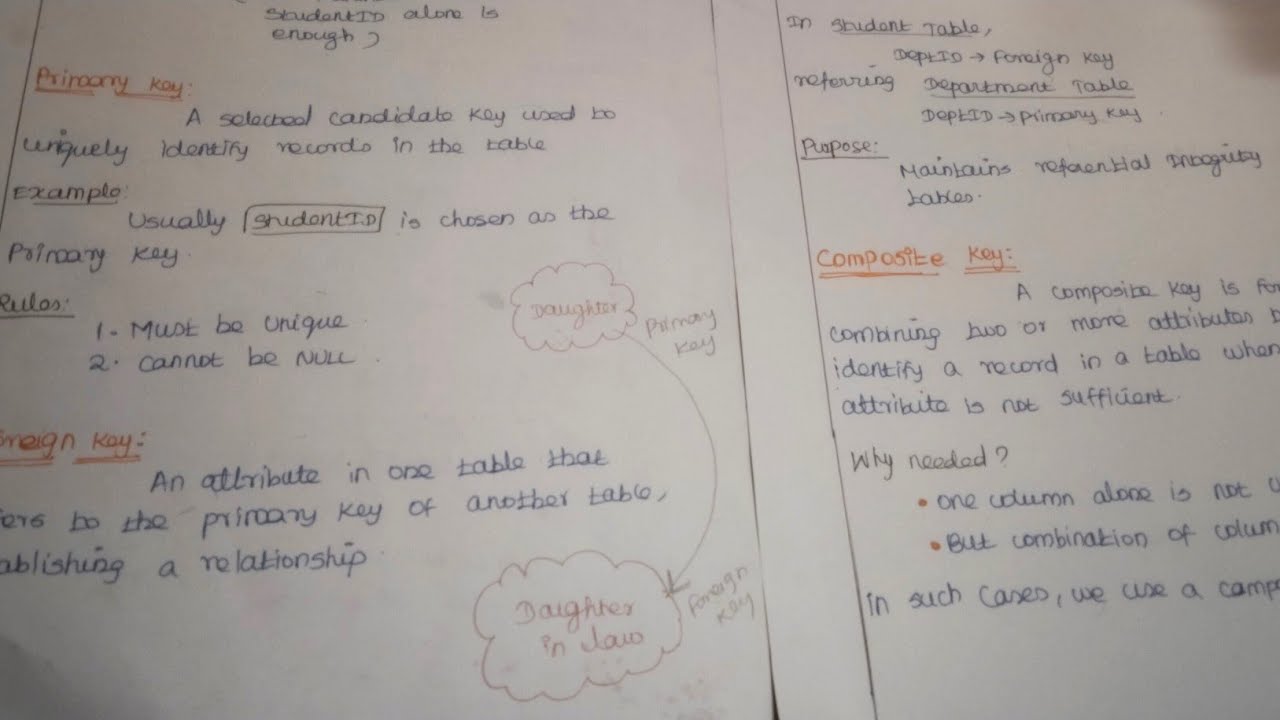 StudentID alone is
enough)
Primary Key:
A selected candidate key used to
uniquely identify records in the table
Example:
Usually StudentID is chosen as the
Primary Key.
Rules:
1. Must be unique.
2. cannot be NULL.
reign Key:
An attribute in one table that
ers to the primary key of another table,
ablishing a relationship.
Daughter
Primary
Key
Daughter
in law
Foreign
Key
In Student Table,
DeptID → Foreign Key
referring Department Table
DeptID → Primary Key.
Purpose:
Maintains referential Integrity
tables.
Composite Key:
A composite key is for
combining two or more attributes
identify a record in a table when
attribute is not sufficient.
Why needed?
• one column alone is not u
• But combination of colum
in such cases, we use a comp